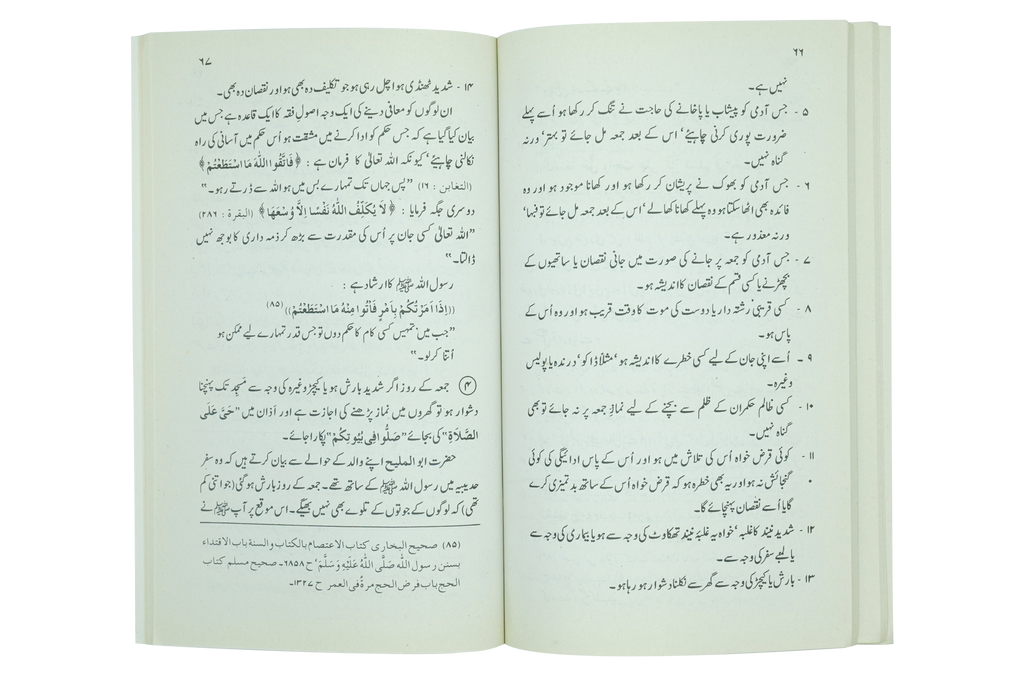 ۶۶
نہیں ہے۔
۵ - جس آدمی کو پیشاب یا پاخانے کی حاجت نے تنگ کر رکھا ہو اُسے پہلے
ضرورت پوری کرنی چاہیئے‘ اس کے بعد جمعہ مل جائے تو بہتر‘ ورنہ
گناہ نہیں۔
۶ - جس آدمی کو بھوک نے پریشان کر رکھا ہو اور کھانا موجود ہو اور وہ
فائدہ بھی اٹھا سکتا ہو وہ پہلے کھانا کھالے‘ اس کے بعد جمعہ مل جائے تو فبہا‘
ورنہ معذور ہے۔
۷ - جس آدمی کو جمعہ پر جانے کی صورت میں جانی نقصان یا ساتھیوں کے
بچھڑنے یا کسی قسم کے نقصان کا اندیشہ ہو۔
۸ - کسی قریبی رشتہ دار یا دوست کی موت کا وقت قریب ہو اور وہ اُس کے
پاس ہو۔
۹ - اُسے اپنی جان کے لیے کسی خطرے کا اندیشہ ہو‘ مثلاً ڈاکو‘ درندہ یا پولیس
وغیرہ۔
۱۰ - کسی ظالم حکمران کے ظلم سے بچنے کے لیے نمازِ جمعہ پر نہ جائے تو بھی
گناہ نہیں۔
۱۱ - کوئی قرض خواہ اُس کی تلاش میں ہو اور اُس کے پاس ادائیگی کی کوئی
گنجائش نہ ہو اور یہ بھی خطرہ ہو کہ قرض خواہ اُس کے ساتھ بدتمیزی کرے
گا یا اُسے نقصان پہنچائے گا۔
۱۲ - شدید نیند کا غلبہ‘ خواہ یہ غلبۂ نیند تھکاوٹ کی وجہ سے ہو یا بیماری کی وجہ سے
یا لمبے سفر کی وجہ سے۔
۱۳ - بارش یا کیچڑ کی وجہ سے گھر سے نکلنا دشوار ہو رہا ہو۔
۶۷
۱۴ - شدید ٹھنڈی ہوا چل رہی ہو جو تکلیف دہ بھی ہو اور نقصان دہ بھی۔
ان لوگوں کو معافی دینے کی ایک وجہ اصولِ فقہ کا ایک قاعدہ ہے جس میں
بیان کیا گیا ہے کہ جس حکم کو ادا کرنے میں مشقت ہو اُس حکم میں آسانی کی راہ
نکالنی چاہیئے‘ کیونکہ اللہ تعالیٰ کا فرمان ہے : ﴿فَاتَّقُوا اللّٰهَ مَا اسْتَطَعْتُمْ﴾
(التغابن : ۱۶) ”پس جہاں تک تمہارے بس میں ہو اللہ سے ڈرتے رہو۔“
دوسری جگہ فرمایا : ﴿لَا يُكَلِّفُ اللّٰهُ نَفْسًا اِلَّا وُسْعَهَا﴾ (البقرة : ۲۸۶)
”اللہ تعالیٰ کسی جان پر اُس کی مقدرت سے بڑھ کر ذمہ داری کا بوجھ نہیں
ڈالتا۔“
رسول اللہ ﷺ کا ارشاد ہے :
((اِذَا اَمَرْتُكُمْ بِاَمْرٍ فَأْتُوا مِنْهُ مَا اسْتَطَعْتُمْ)) (۸۵)
”جب میں تمہیں کسی کام کا حکم دوں تو جس قدر تمہارے لیے ممکن ہو
اُتنا کر لو۔“
④ جمعہ کے روز اگر شدید بارش ہو یا کیچڑ وغیرہ کی وجہ سے مسجد تک پہنچنا
دشوار ہو تو گھروں میں نماز پڑھنے کی اجازت ہے اور اَذان میں ”حَیَّ عَلَی
الصَّلَاةِ“ کی بجائے ”صَلُّوا فِی بُیُوتِکُمْ“ پکارا جائے۔
حضرت ابوالملیح اپنے والد کے حوالے سے بیان کرتے ہیں کہ وہ سفر
حدیبیہ میں رسول اللہ ﷺ کے ساتھ تھے۔ جمعہ کے روز بارش ہو گئی (جو اتنی کم
تھی) کہ لوگوں کے جوتوں کے تلوے بھی نہیں بھیگے۔ اس موقع پر آپ ﷺ نے
(۸۵) صحیح البخاری کتاب الاعتصام بالکتاب والسنة باب الاقتداء
بسنن رسول اللّٰه صَلَّی اللّٰهُ عَلَیْهِ وَسَلَّمَ‘ ح ۶۸۵۸۔ صحیح مسلم کتاب
الحج باب فرض الحج مرةً فی العمر ح ۱۳۲۷۔